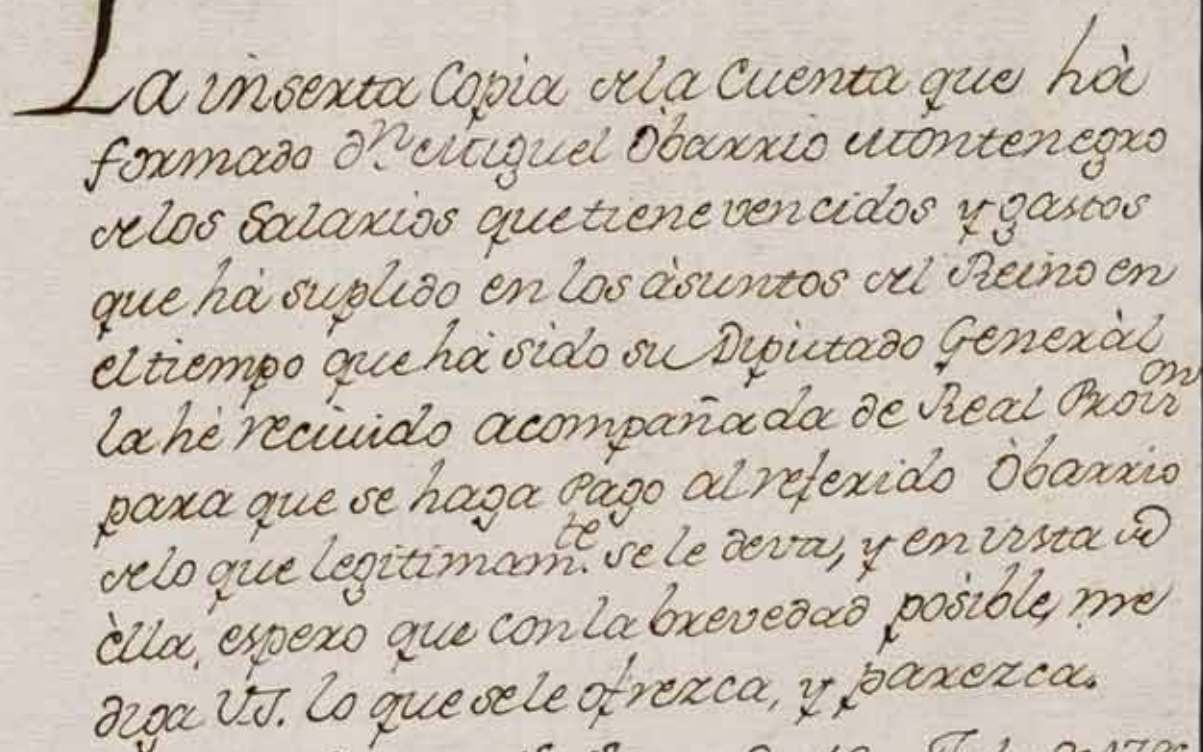 La inserta Copia dela Cuenta que há
formado Dn. Miguel Obarrio Montenegro
delos Salarios que tiene vencidos y gastos
que há suplido en los asuntos del Reino en
el tiempo que há sido su Diputado General
la hé reciuido acompañada de Real Provon
para que se haga Pago al referido Obarrio
delo que legitimamte. se le deva, y en vista de
èlla, espero que con la brevedad posible, me
diga V.S. lo que sele ofrezca, y parezca.